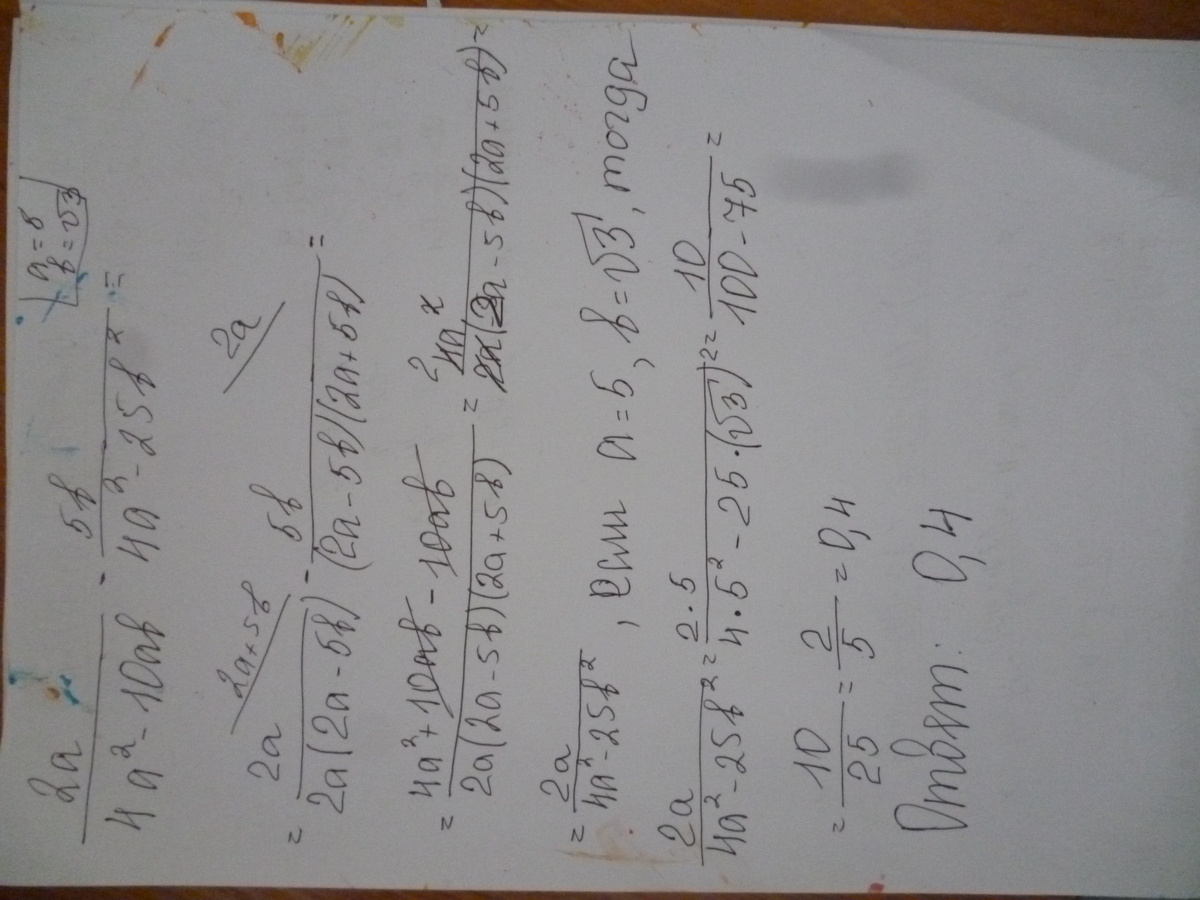 2a/(4a² - 10ab) - 5b/(4a² - 25b²) = | a = 8
b = √3
= 2a/(2a(2a - 5b)) \2a + 5b - 5b/((2a - 5b)(2a + 5b)) \2a =
= (4a² + 10ab - 10ab)/(2a(2a - 5b)(2a + 5b)) = 2 4a²/(2a(2a - 5b)(2a + 5b)) =
= 2a/(4a² - 25b²) , если a = 5, b = √3, тогда
2a/(4a² - 25b²) = 2·5/(4·5² - 25·(√3)²) = 10/(100 - 75) =
= 10/25 = 2/5 = 0,4
Ответ: 0,4